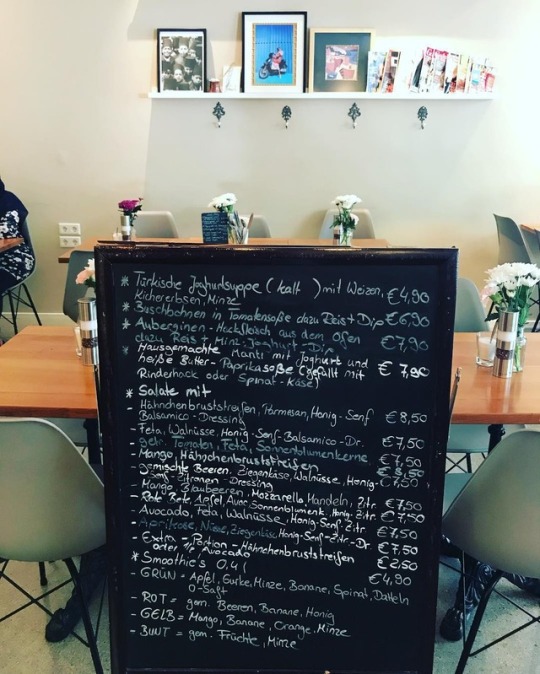 * Türkische Joghurtsuppe (kalt) mit Weizen, €4,90
Kichererbsen, Minze
* Buschbohnen in Tomatensoße dazu Reis + Dip €6,90
* Auberginen-Hackfleisch aus dem Ofen €7,90
dazu Reis + Minz-Joghurt-Dip
* Hausgemachte Manti mit Joghurt und
heiße Butter-Paprikasoße (gefüllt mit €7,90
Rinderhack oder Spinat-Käse)
* Salate mit
- Hähnchenbruststreifen, Parmesan, Honig-Senf €8,50
Balsamico-Dressing
- Feta, Walnüsse, Honig-Senf-Balsamico-Dr. €7,50
- getr. Tomaten, Feta, Sonnenblumenkerne €7,50
- Mango, Hähnchenbruststreifen €8,50
- gemischte Beeren, Ziegenkäse, Walnüsse, Honig- €7,50
Senf-Zitronen-Dressing
- Mango, Blaubeeren, Mozzarella, Mandeln, Zitr.
- Rote Bete, Apfel, Sonnenblumenk. Honig-Zitr. €7,50
- Avocado, Feta, Walnüsse, Honig-Senf-Zitr. €7,50
- Aprikose, Nüsse, Ziegenkäse Honig-Senf-Zitr.-Dr. €7,50
- Extra-Portion-Hähnchenbruststreifen €2,50
oder Avocado
* Smoothie's 0,4 l €4,90
GRÜN = Apfel, Gurke, Minze, Banane, Spinat, Datteln
O-Saft
- ROT = gem. Beeren, Banane, Honig
- GELB = Mango, Banane, Orange, Minze
- BUNT = gem. Früchte, Minze